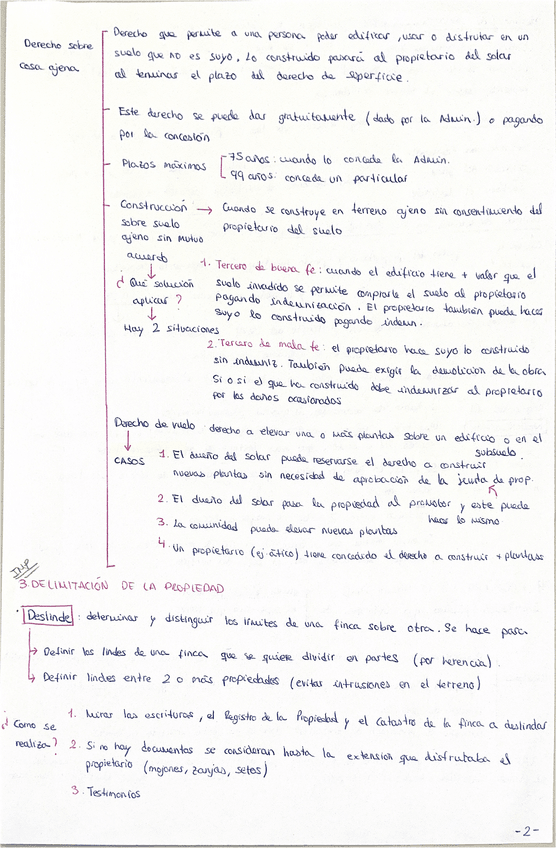 Derecho sobre
cosa ajena
Derecho que permite a una persona poder edificar, usar o disfrutar en un
suelo que no es suyo. Lo construido pasará al propietario del solar
al terminar el plazo del derecho de superficie.
Este derecho se puede dar gratuitamente (dado por la Admin.) o pagando
por la concesión
Plazos máximos
75 años: cuando lo concede la Admin.
99 años: concede un particular
Construcción → Cuando se construye en terreno ajeno sin consentimiento del
sobre suelo propietario del suelo
ajeno sin mutuo
acuerdo
¿Qué solución
aplicar?
Hay 2 situaciones
1. Tercero de buena fe: cuando el edificio tiene + valor que el
suelo invadido se permite comprarle el suelo al propietario
pagando indemnización. El propietario también puede hacer
suyo lo construido pagando indemn.
2. Tercero de mala fe: el propietario hace suyo lo construido
sin indemniz. También puede exigir la demolición de la obra
Si o si el que ha construido debe indemnizar al propietario
por los daños ocasionados
Derecho de vuelo derecho a elevar una o más plantas sobre un edificio o en el
subsuelo.
CASOS
1. El dueño del solar puede reservarse el derecho a construir
nuevas plantas sin necesidad de aprobación de la junta de prop.
2. El dueño del solar pasa la propiedad al promotor y este puede
hacer lo mismo
3. La comunidad puede elevar nuevas plantas
4. Un propietario (ej. ático) tiene concedido el derecho a construir + plantas
IMP
3. DELIMITACIÓN DE LA PROPIEDAD
Deslinde: determinar y distinguir los límites de una finca sobre otra. Se hace para
→ Definir los lindes de una finca que se quiere dividir en partes (por herencia).
→ Definir lindes entre 2 o más propiedades (evitar intrusiones en el terreno)
¿Como se
realiza?
1. Mirar las escrituras, el Registro de la Propiedad y el Catastro de la finca a deslindar
2. Si no hay documentos se consideran hasta la extension que disfrutaba el
propietario (mojones, zanjas, setos)
3. Testimonios
-2-